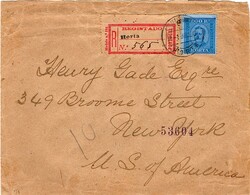 REGISTADO
R
Horta
N.º 565
Henry Gade Esqre
349 Broome Street
New York
53604
U. S. of America